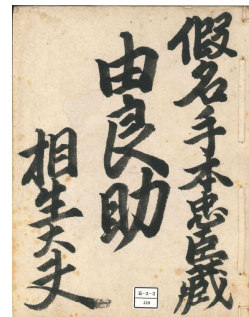 假名手本忠臣蔵
由良助
相生太夫